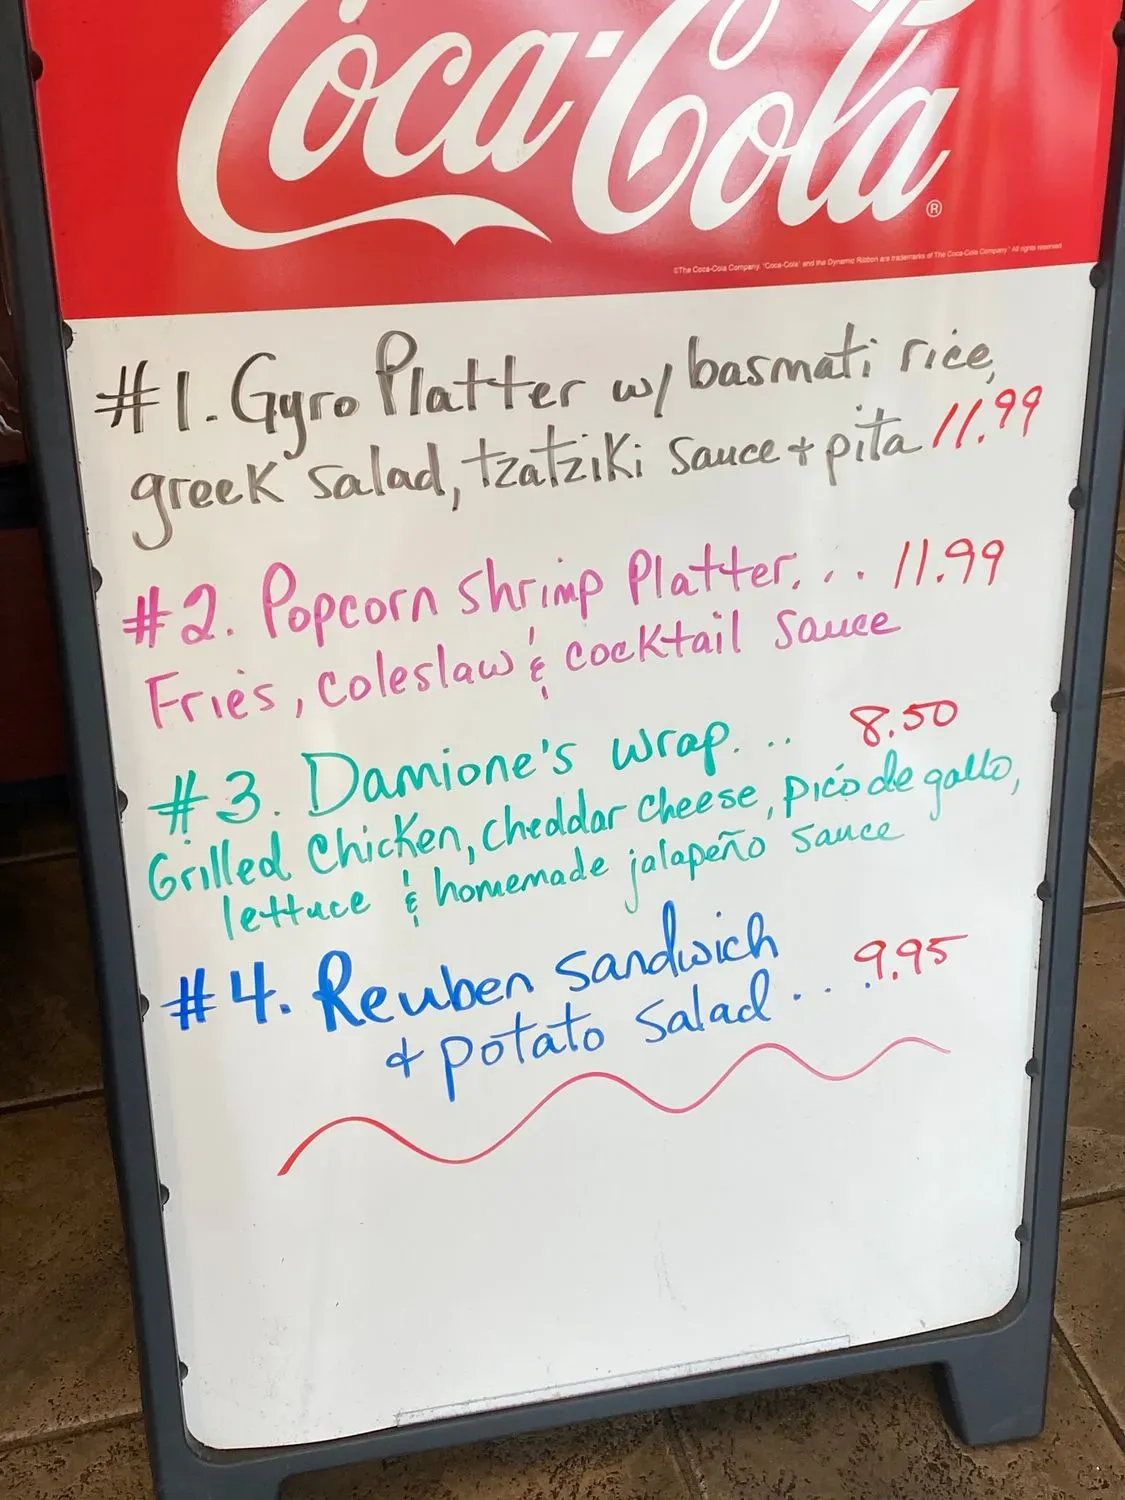 Coca-Cola®
©The Coca-Cola Company. "Coca-Cola" and the Dynamic Ribbon are trademarks of The Coca-Cola Company. All rights reserved
#1. Gyro Platter w/ basmati rice,
greek salad, tzatziki sauce + pita 11.99
#2. Popcorn shrimp Platter... 11.99
Fries, coleslaw & cocktail sauce
#3. Damione's wrap... 8.50
Grilled Chicken, cheddar cheese, pico de gallo,
lettuce & homemade jalapeño sauce
#4. Reuben sandwich
+ potato salad... 9.95